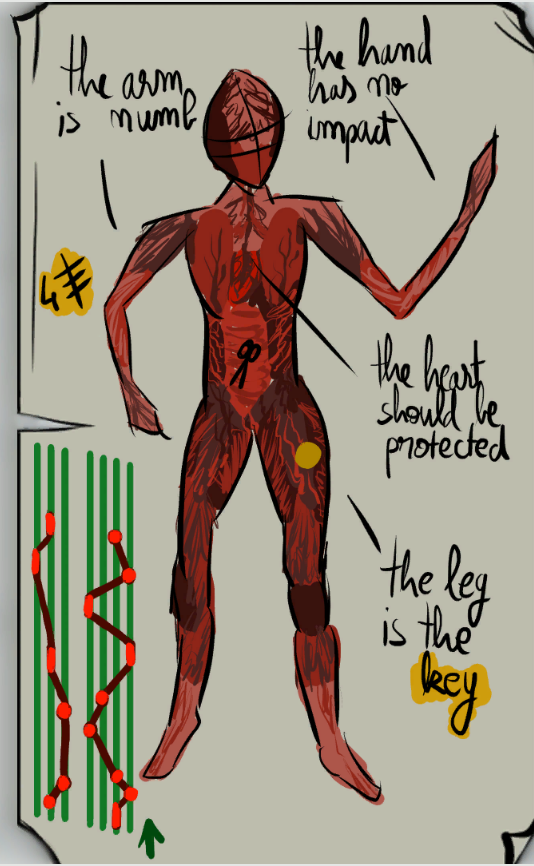 the arm
is numb
the hand
has no
impact
4 #
the heart
should be
protected
the leg
is the
key